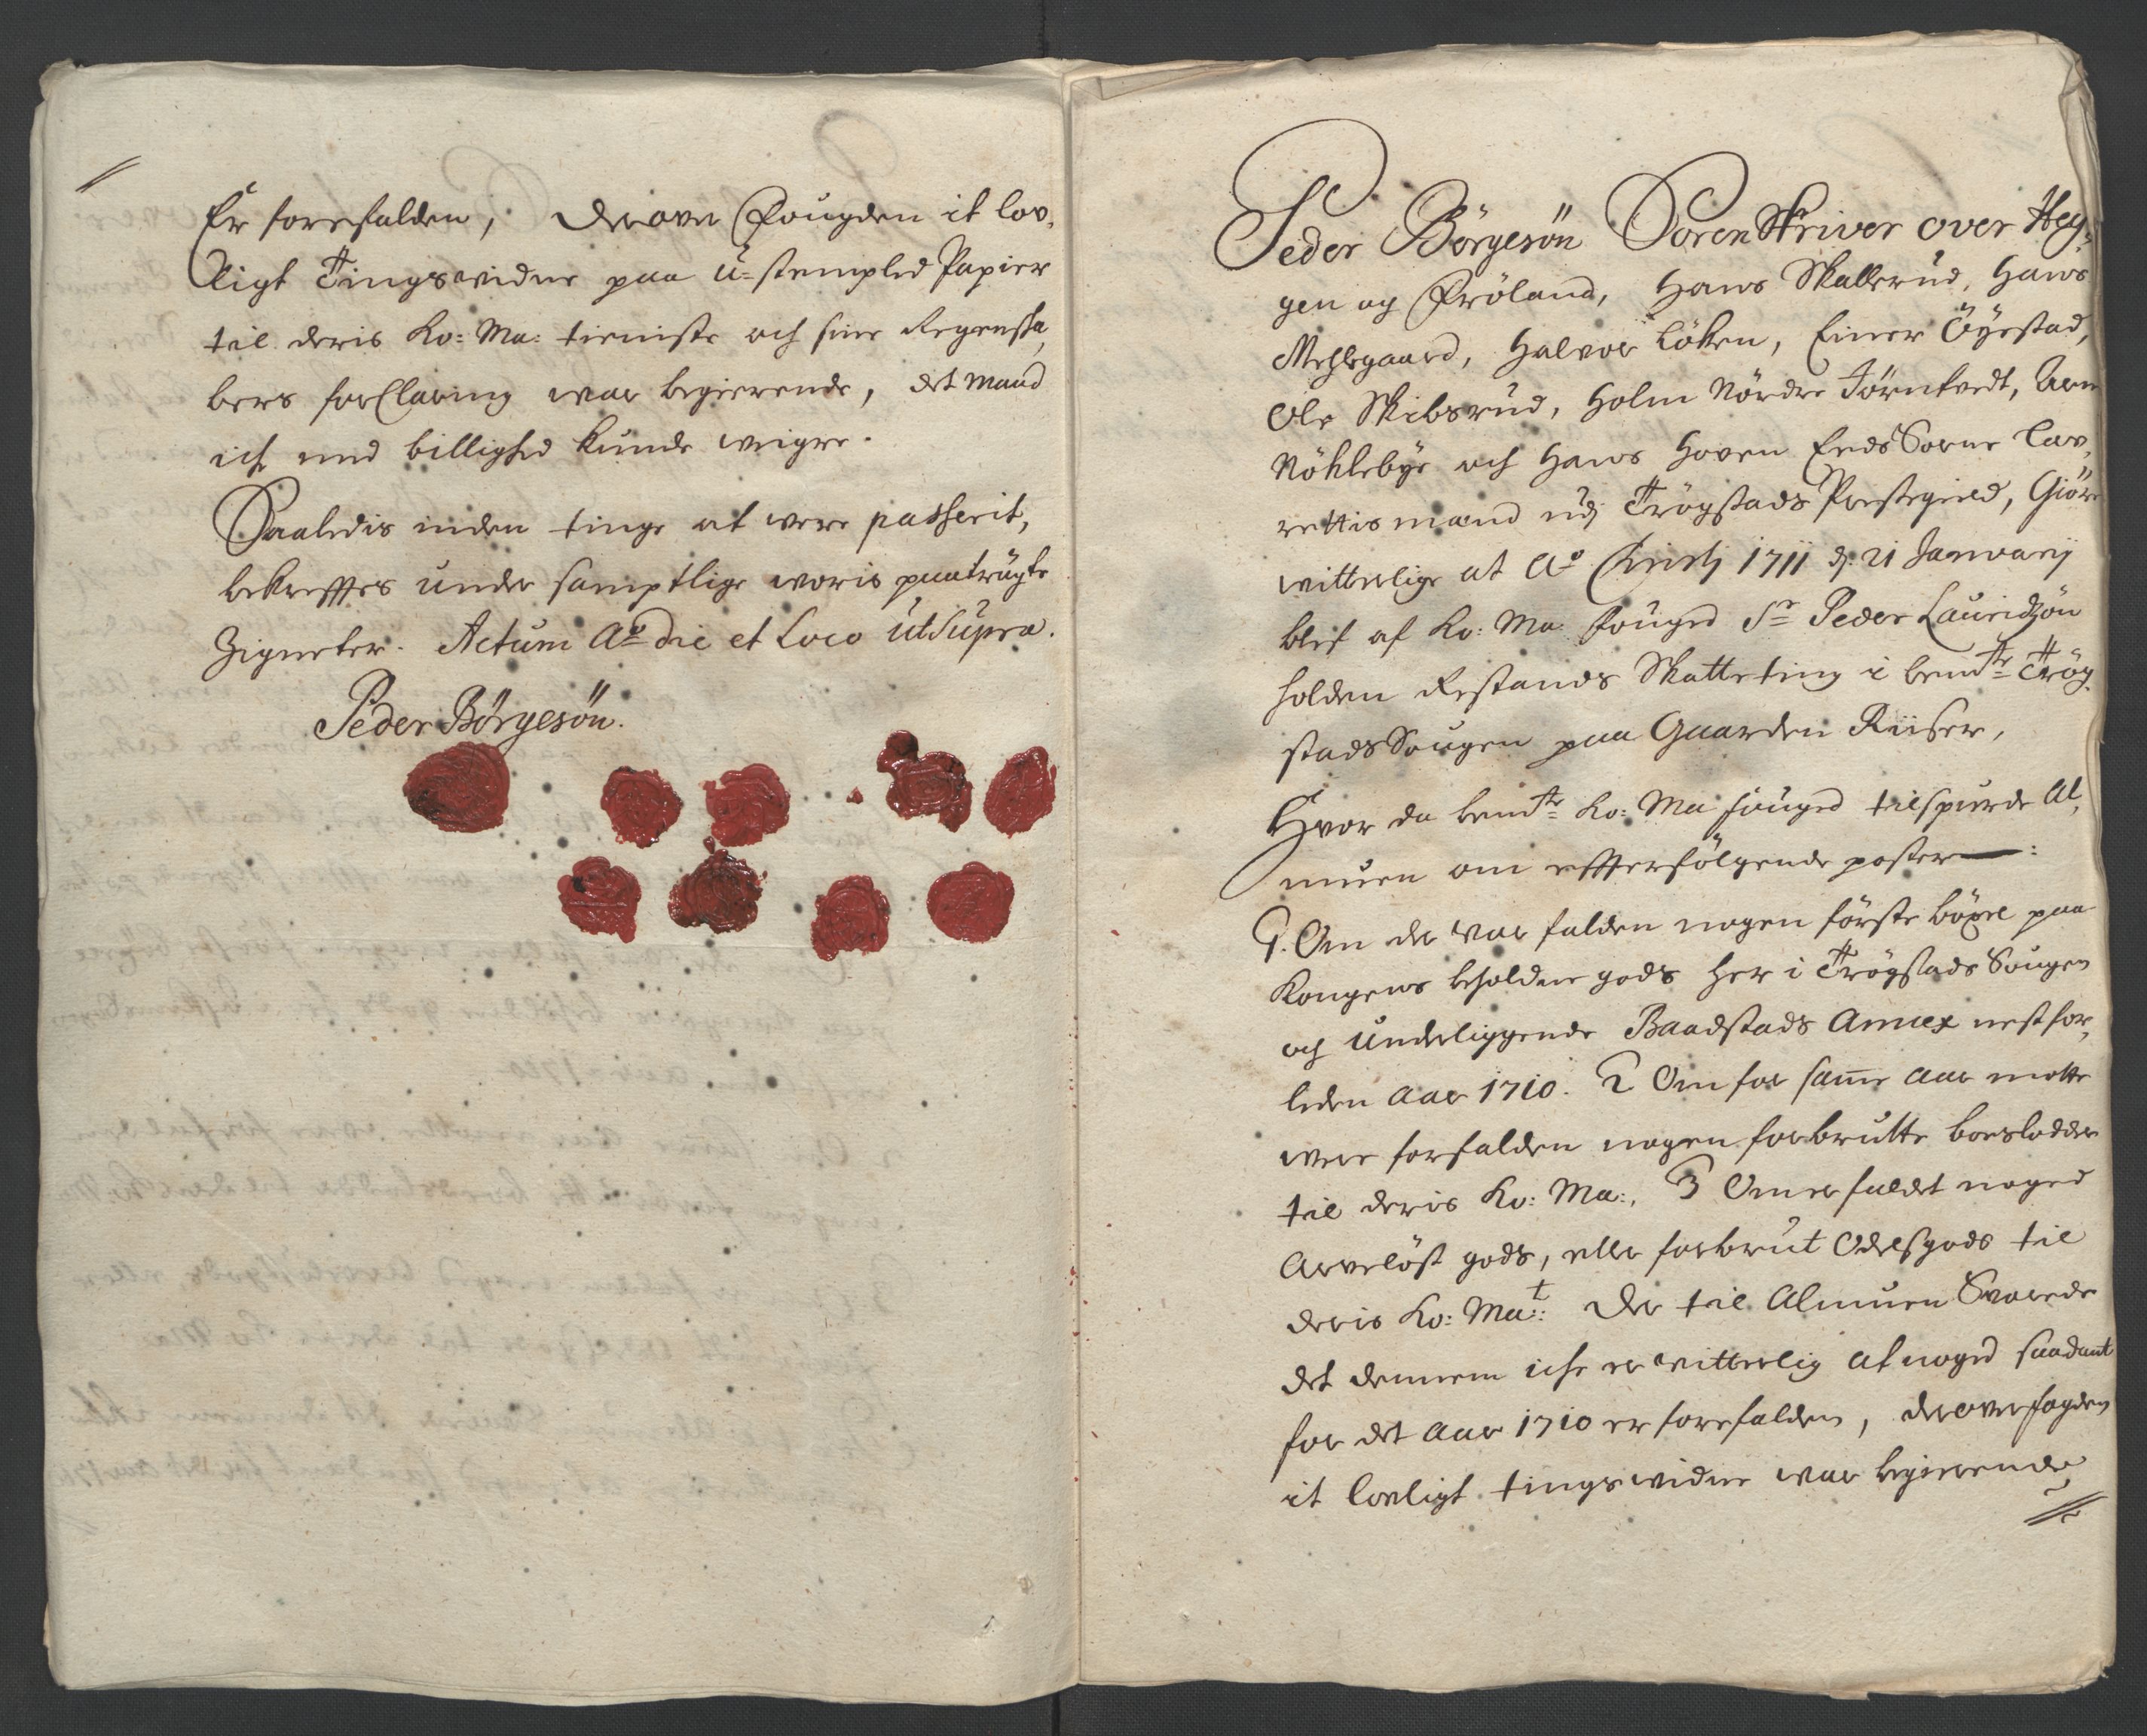 Er forefalden, derover Fougden it lov,
ligt Tingsvidne paa u=stempled Papier
til deris Ko: Ma: tieniste och sine Regenska,
bers forClaring war begierende, det mand
ich med billighed kunde weigre.
Saaledis inden tinge at were passerit,
bekreffter under samptlige woris paatrügte
Zigneter. Actum Ao die et Loco ütSupra.
Peder Börgesön.
Peder Börgesön SorenSkriver over Heg,
gen og Fröland, Hans Skallerud, Hans
Mehlgaard, Halvor Löken, Einer Öÿestad,
Ole Skibsrud, Holm Nördre Törntvedt, Arn
Nöklebye och Hans Hoven EedsSorne Lav,
rettismænd udj Trögstads Prestegield, Giöre
witterlige at Ao Christj 1711 d. 21 Januarij
blef af Ko: Ma: fouged Sr Peder Lauridzön
holden Restands Skatteting i bemte Trög,
stads Sougen paa Gaarden Riiser,
Hvor da bemte Ko: Ma fouged tilspurde Al,
muen om effterfölgende poster :
1. Om der var falden nogen förste böxel paa
Kongens beholdne gods her i Trögstads Sougen
och underliggende Baadstads Annex nest for,
leden Aar 1710. 2 Om for samme Aar motte
were forfalden nogen forbrutte boeslodder
til deris Ko: Ma:, 3 Om er faldet noged
Arvelöst gods, eller forbrut Odelsgods til
deris Ko: Mat: Der til Almuen Svarede
det dennem iche er witterlig at noged saadant
for det Aar 1710 er forefalden, derover fogden
it lovligt tingsvidne war begierende